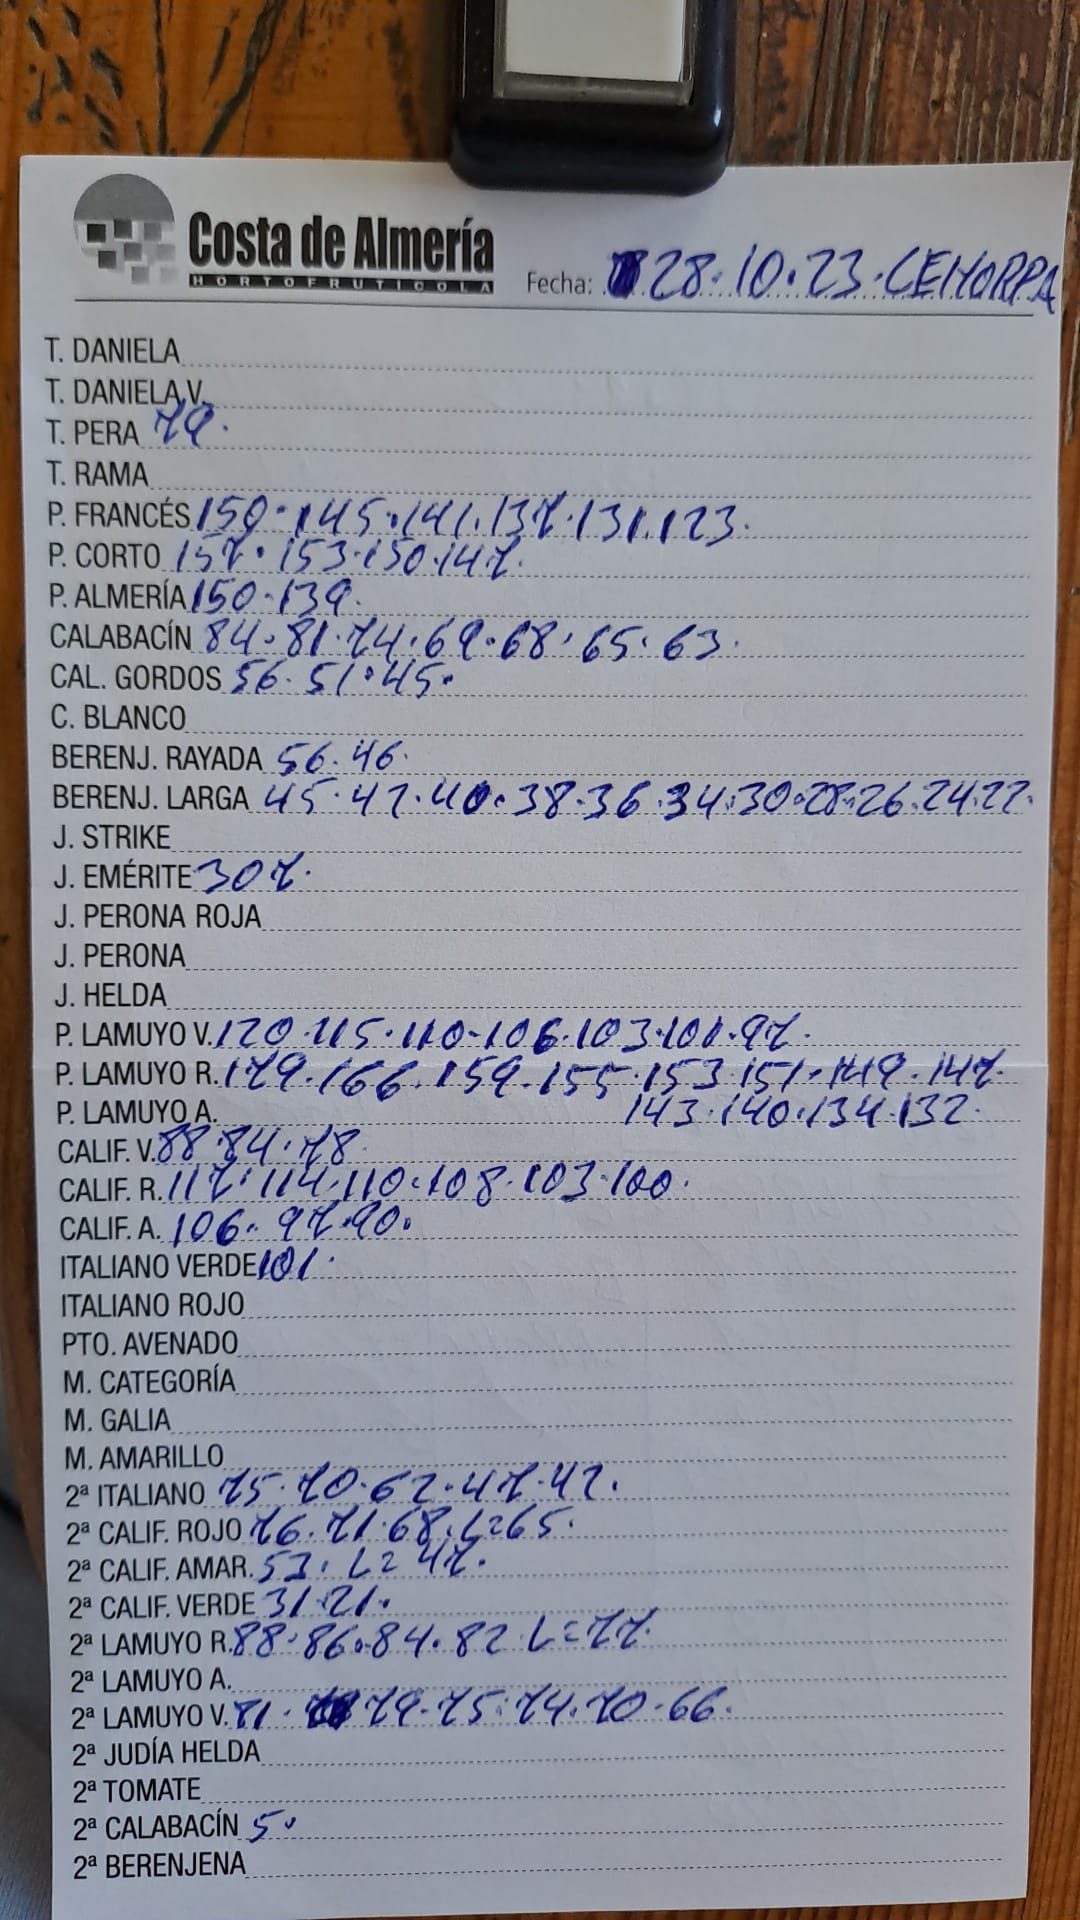 Costa de Almería
HORTOFRUTICOLA
Fecha: 28.10.23.CEHORPA
T. DANIELA
T. DANIELA V.
T. PERA 79.
T. RAMA
P. FRANCÉS 150.145.141.137.131.123.
P. CORTO 157.153.150.147.
P. ALMERÍA 150.139.
CALABACÍN 84.81.74.69.68.65.63.
CAL. GORDOS 56.51.45.
C. BLANCO
BERENJ. RAYADA 56.46.
BERENJ. LARGA 45.42.40.38.36.34.30.28.26.24.22.
J. STRIKE
J. EMÉRITE 307.
J. PERONA ROJA
J. PERONA
J. HELDA
P. LAMUYO V. 120.115.110.106.103.101.97.
P. LAMUYO R. 179.166.159.155.153.151.149.147.
P. LAMUYO A. 143.140.134.132.
CALIF. V. 88.84.78.
CALIF. R. 117.114.110.108.103.100.
CALIF. A. 106.97.90.
ITALIANO VERDE 101.
ITALIANO ROJO
PTO. AVENADO
M. CATEGORÍA
M. GALIA
M. AMARILLO
2ª ITALIANO 75.70.62.47.42.
2ª CALIF. ROJO 76.71.68.L=65.
2ª CALIF. AMAR. 53.L=47.
2ª CALIF. VERDE 31.21.
2ª LAMUYO R. 88.86.84.82 L=77.
2ª LAMUYO A.
2ª LAMUYO V. 81.79.75.74.70.66.
2ª JUDÍA HELDA
2ª TOMATE
2ª CALABACÍN 5.
2ª BERENJENA